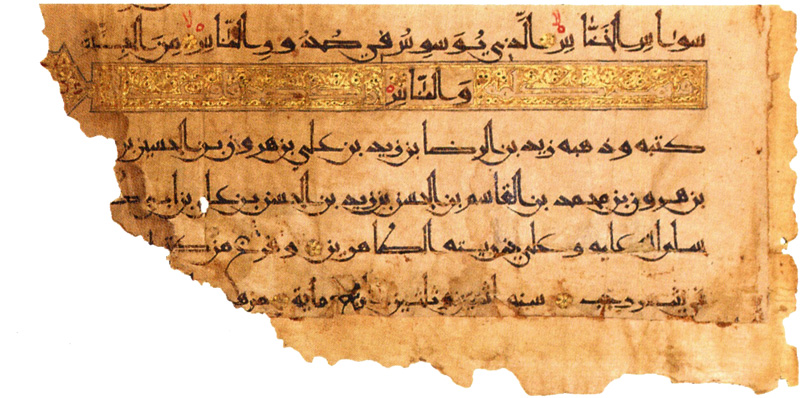 سواس الخناس الذي يوسوس في صدور الناس من الجنة
والناس
كتبه وذهبه زيد بن الرضا بن زيد بن علي بن هرون بن الحسين بن
بن هرون بن محمد بن القاسم بن الحسن بن زيد بن الحسن بن علي بن ابي
سلم الله عليه وعلى ذريته الطاهرين وفرغ من
في رجب سنة اثنين وثلثين مائة